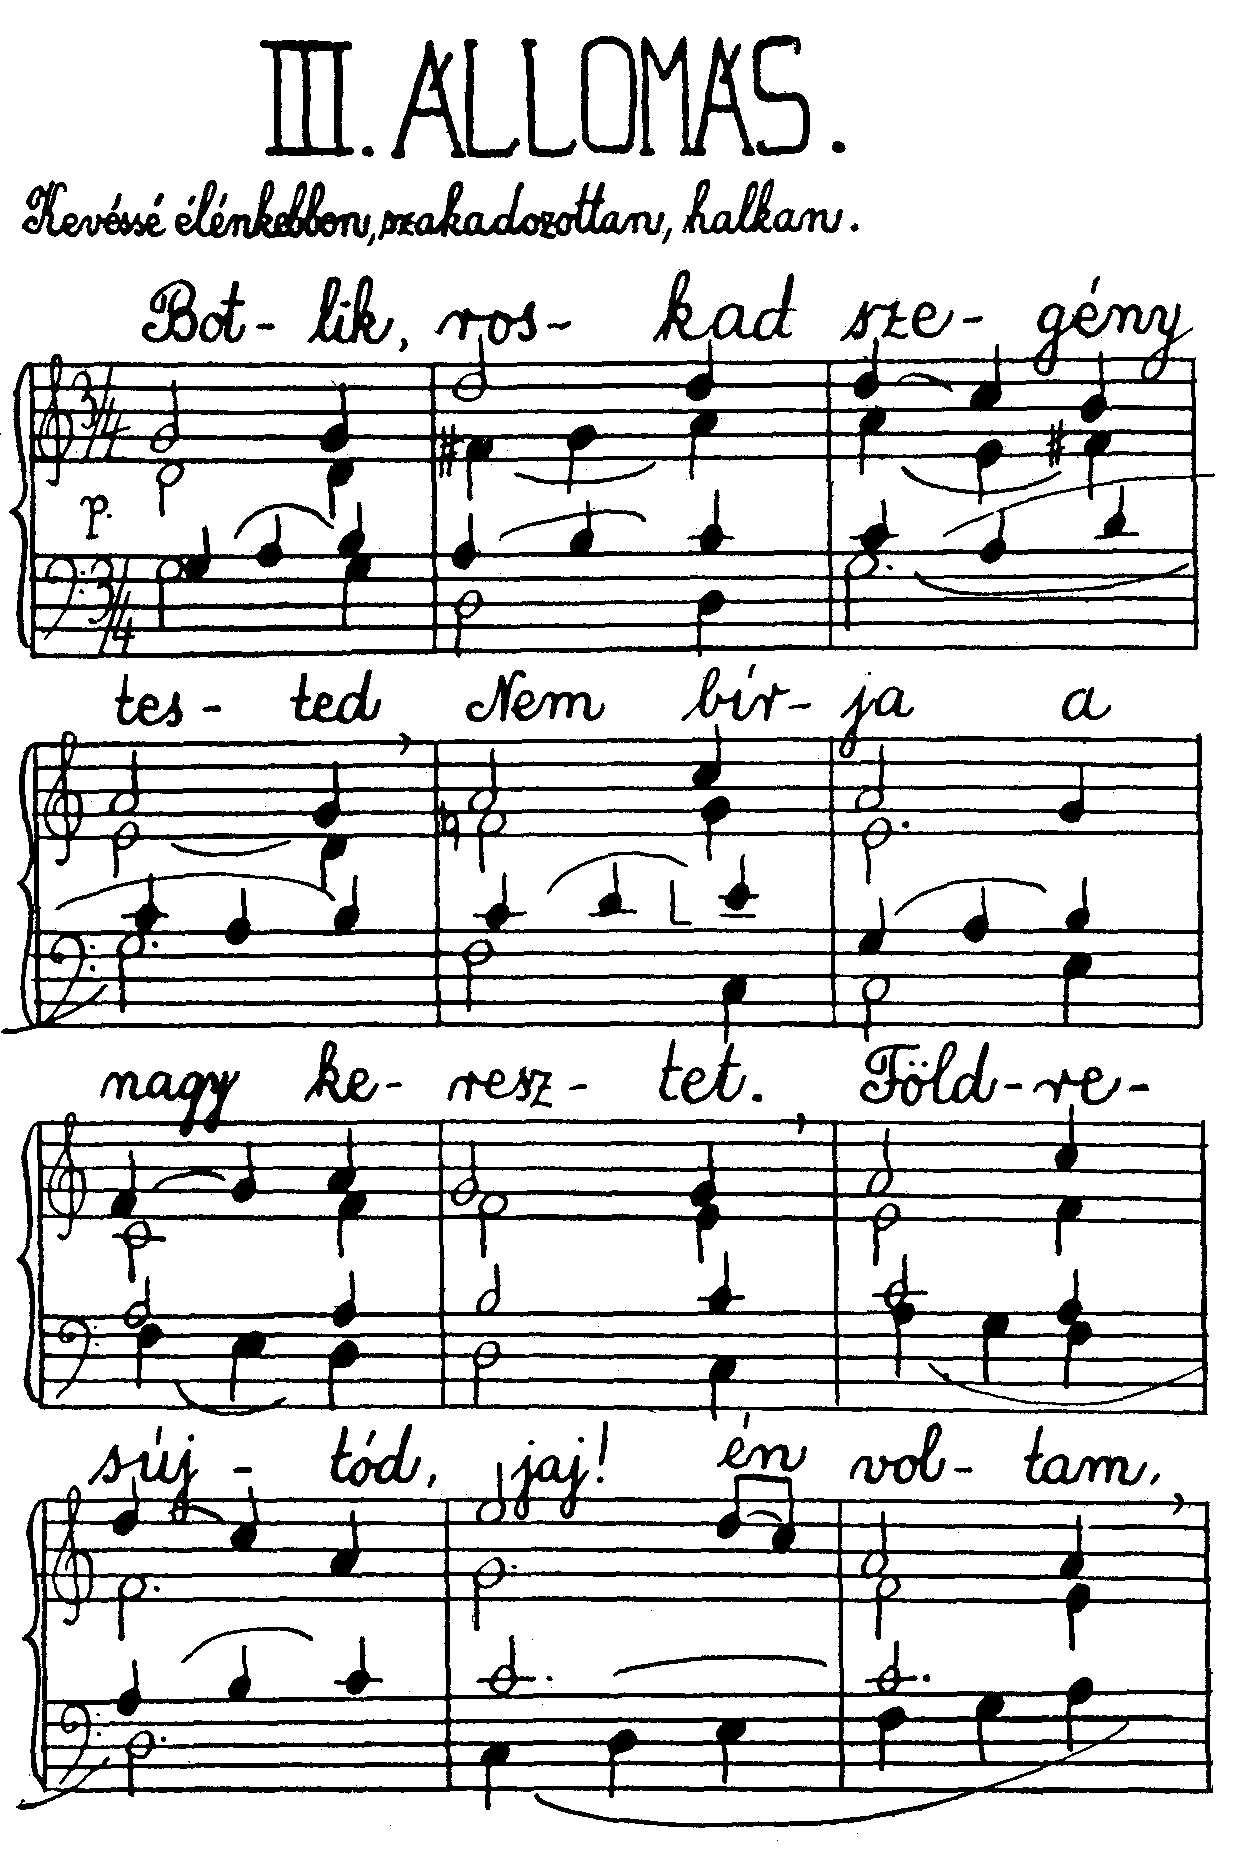 III. ÁLLOMÁS.
Kevéssé élénkebben, szakadozottan, halkan.
Bot- lik, ros- kad sze- gény
3/4
p.
3/4
tes- ted Nem bír- ja a
nagy ke- resz- tet. Föld- re-
súj- tód, jaj! én vol- tam,